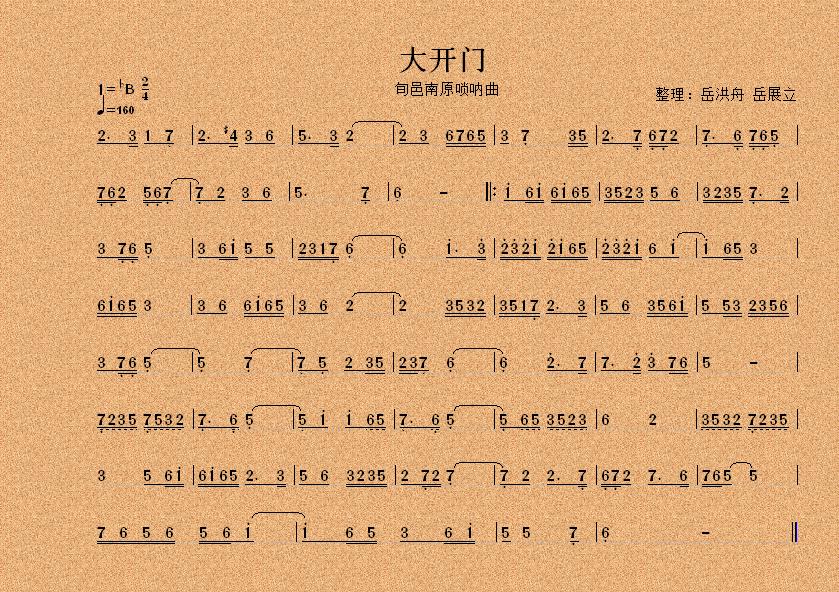 大开门
旬邑南原唢呐曲
1=♭B 2/4
整理：岳洪舟 岳展立
♩=160
2. 3 1 7 | 2. ♯4 3 6 | 5. 3 2 | 2 3 6765 | 3 7 35 | 2. 7 672 | 7. 6 765 |
762 567 | 7 2 3 6 | 5. 7 | 6 - ‖: i 6i 6i65 | 3523 5 6 | 3235 7. 2 |
3 76 5 | 3 6i 5 5 | 2317 6 | 6 i. 3 | 2321 2165 | 2321 6 i | i 65 3 |
6i65 3 | 3 6 6i65 | 3 6 2 | 2 3532 | 3517 2. 3 | 5 6 356i | 5 53 2356 |
3 76 5 | 5 7 | 7 5 2 35 | 237 6 | 6 2. 7 | 7. 2 3 76 | 5 - |
7235 7532 | 7. 6 5 | 5 i i 65 | 7. 6 5 | 5 65 3523 | 6 2 | 3532 7235 |
3 5 6i | 6i65 2. 3 | 5 6 3235 | 2 72 7 | 7 2 2. 7 | 672 7. 6 | 765 5 |
7 6 5 6 5 6 i | i 6 5 3 6 i | 5 5 7 | 6 - ‖